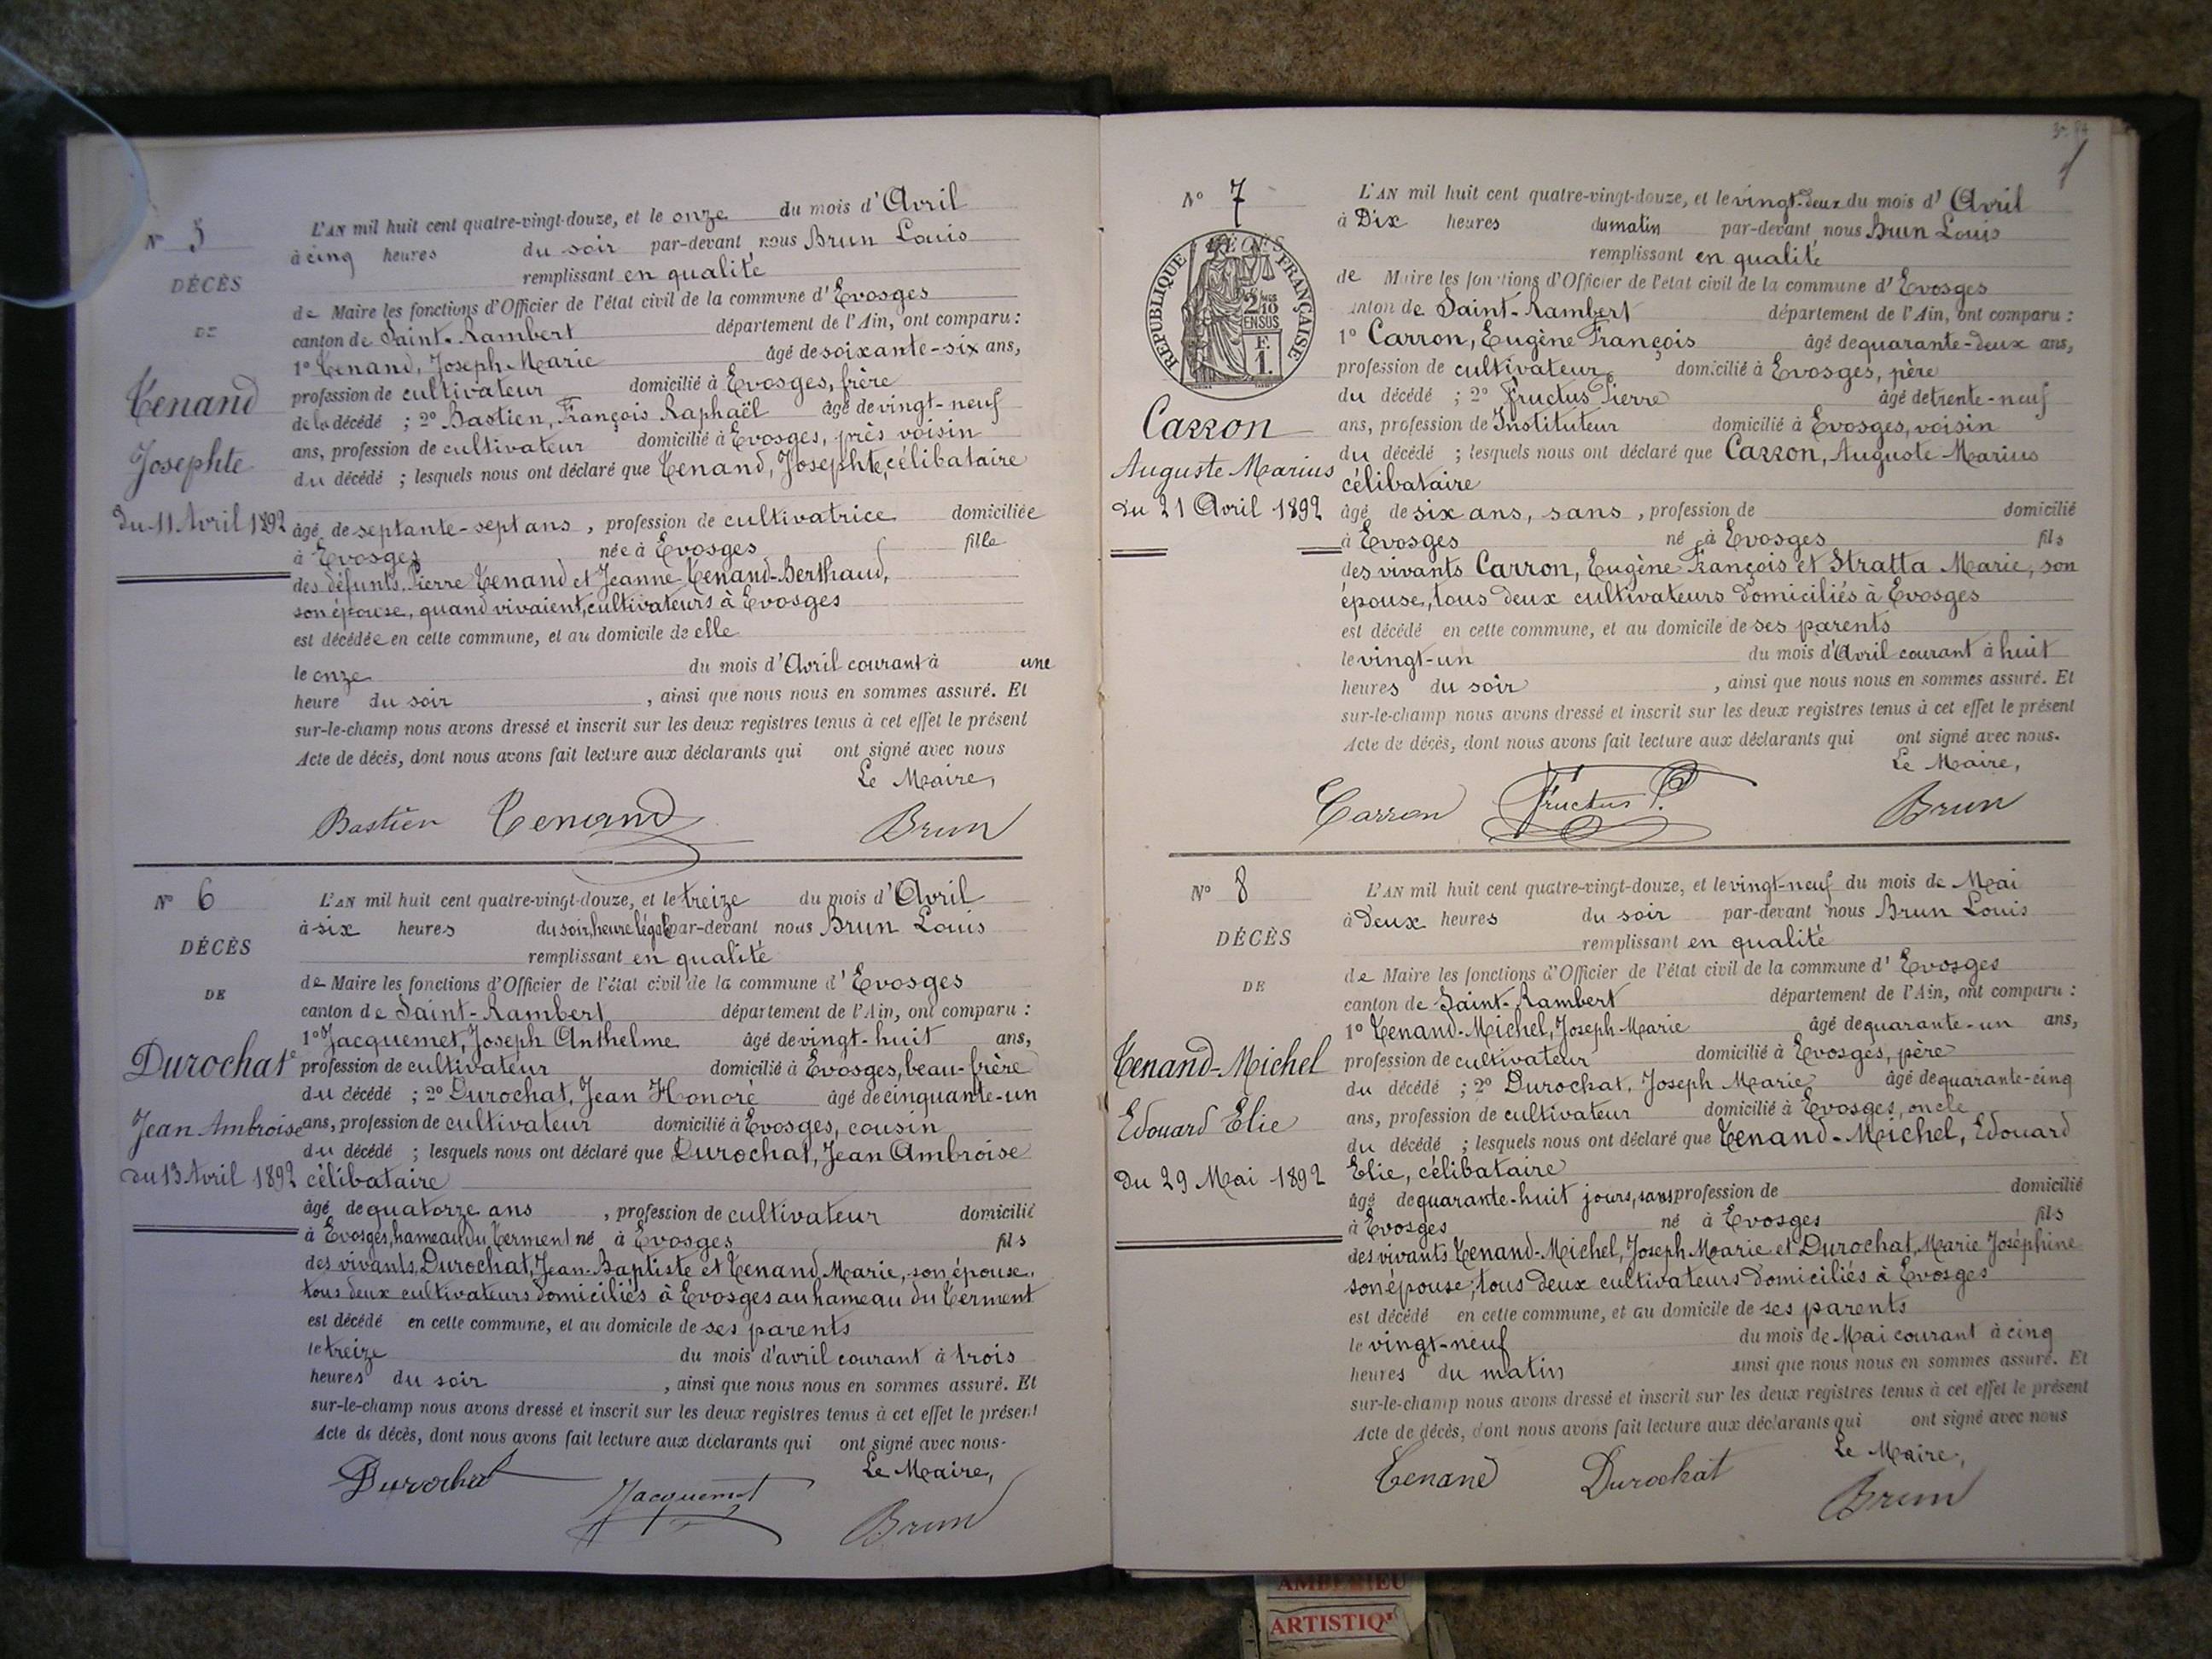 N° 5
DÉCÈS
DE
Tenand
Josephte
du 11 Avril 1892
L'AN mil huit cent quatre-vingt-douze, et le onze du mois d'Avril
à cinq heures du soir par-devant nous Brun Louis
remplissant en qualité
de Maire les fonctions d'Officier de l'état civil de la commune d'Evosges
canton de Saint-Rambert département de l'Ain, ont comparu :
1° Tenand, Joseph Marie âgé de soixante-six ans,
profession de cultivateur domicilié à Evosges, frère
de la décédé ; 2° Bastien, François Raphaël âgé de vingt-neuf
ans, profession de cultivateur domicilié à Evosges, près voisin
du décédé ; lesquels nous ont déclaré que Tenand, Josephte, célibataire
âgé de septante-sept ans, profession de cultivatrice domiciliée
à Evosges née à Evosges fille
des défunts Pierre Tenand et Jeanne Tenand-Berthaud,
son épouse, quand vivaient, cultivateurs à Evosges
est décédée en cette commune, et au domicile de elle
le onze du mois d'Avril courant à une
heure du soir, ainsi que nous nous en sommes assuré. Et
sur-le-champ nous avons dressé et inscrit sur les deux registres tenus à cet effet le présent
Acte de décès, dont nous avons fait lecture aux déclarants qui ont signé avec nous
Le Maire,
Bastien Tenand Brun
N° 6
DÉCÈS
DE
Durochat
Jean Ambroise
du 13 Avril 1892
L'AN mil huit cent quatre-vingt-douze, et le treize du mois d'Avril
à six heures du soir, heure légale par-devant nous Brun Louis
remplissant en qualité
de Maire les fonctions d'Officier de l'état civil de la commune d'Evosges
canton de Saint-Rambert département de l'Ain, ont comparu :
1° Jacquemet, Joseph Anthelme âgé de vingt-huit ans,
profession de cultivateur domicilié à Evosges, beau-frère
du décédé ; 2° Durochat, Jean Honoré âgé de cinquante-un
ans, profession de cultivateur domicilié à Evosges, cousin
du décédé ; lesquels nous ont déclaré que Durochat, Jean Ambroise
célibataire
âgé de quatorze ans, profession de cultivateur domicilié
à Evosges, hameau du Terment né à Evosges fils
des vivants, Durochat, Jean-Baptiste et Tenand Marie, son épouse,
tous deux cultivateurs domiciliés à Evosges au hameau du Terment
est décédé en cette commune, et au domicile de ses parents
le treize du mois d'avril courant à trois
heures du soir, ainsi que nous nous en sommes assuré. Et
sur-le-champ nous avons dressé et inscrit sur les deux registres tenus à cet effet le présent
Acte de décès, dont nous avons fait lecture aux déclarants qui ont signé avec nous.
Le Maire,
Durochat Jacquemet Brun
N° 7
DÉCÈS
RÉPUBLIQUE FRANÇAISE
2/10 EN SUS
F. 1.
Carron
Auguste Marius
du 21 Avril 1892
L'AN mil huit cent quatre-vingt-douze, et le vingt-deux du mois d'Avril
à Dix heures du matin par-devant nous Brun Louis
remplissant en qualité
de Maire les fonctions d'Officier de l'état civil de la commune d'Evosges
canton de Saint-Rambert département de l'Ain, ont comparu :
1° Carron, Eugène François âgé de quarante-deux ans,
profession de cultivateur domicilié à Evosges, père
du décédé ; 2° Fructus Pierre âgé de trente-neuf
ans, profession de Instituteur domicilié à Evosges, voisin
du décédé ; lesquels nous ont déclaré que Carron, Auguste Marius
célibataire
âgé de six ans, sans, profession de domicilié
à Evosges né à Evosges fils
des vivants Carron, Eugène François et Stratta Marie, son
épouse, tous deux cultivateurs domiciliés à Evosges
est décédé en cette commune, et au domicile de ses parents
le vingt-un du mois d'Avril courant à huit
heures du soir, ainsi que nous nous en sommes assuré. Et
sur-le-champ nous avons dressé et inscrit sur les deux registres tenus à cet effet le présent
Acte de décès, dont nous avons fait lecture aux déclarants qui ont signé avec nous.
Le Maire,
Carron Fructus P. Brun
N° 8
DÉCÈS
DE
Tenand-Michel
Edouard Elie
du 29 Mai 1892
L'AN mil huit cent quatre-vingt-douze, et le vingt-neuf du mois de Mai
à deux heures du soir par-devant nous Brun Louis
remplissant en qualité
de Maire les fonctions d'Officier de l'état civil de la commune d'Evosges
canton de Saint-Rambert département de l'Ain, ont comparu :
1° Tenand-Michel, Joseph Marie âgé de quarante-un ans,
profession de cultivateur domicilié à Evosges, père
du décédé ; 2° Durochat, Joseph Marie âgé de quarante-cinq
ans, profession de cultivateur domicilié à Evosges, oncle
du décédé ; lesquels nous ont déclaré que Tenand-Michel, Edouard
Elie, célibataire
âgé de quarante-huit jours, sans profession de domicilié
à Evosges né à Evosges fils
des vivants Tenand-Michel, Joseph Marie et Durochat, Marie Joséphine
son épouse, tous deux cultivateurs domiciliés à Evosges
est décédé en cette commune, et au domicile de ses parents
le vingt-neuf du mois de Mai courant à cinq
heures du matin ainsi que nous nous en sommes assuré. Et
sur-le-champ nous avons dressé et inscrit sur les deux registres tenus à cet effet le présent
Acte de décès, dont nous avons fait lecture aux déclarants qui ont signé avec nous
Le Maire,
Tenand Durochat Brun
AMBERIEU
ARTISTIQ